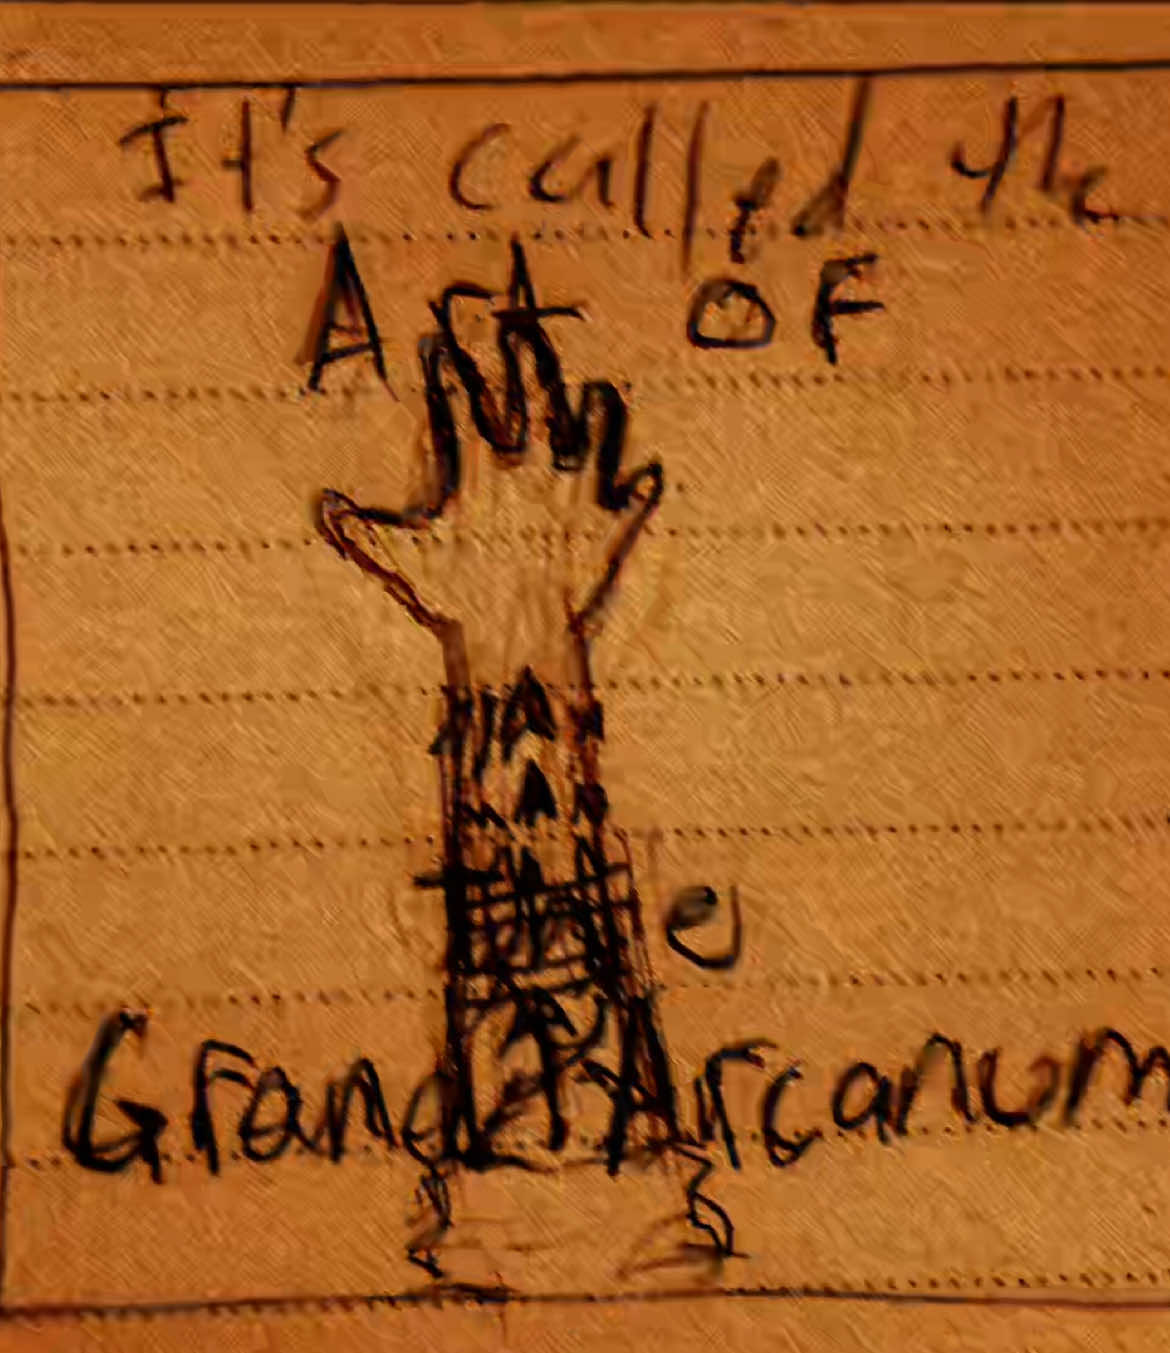 It's called the
Art OF
the
Grand Arcanum